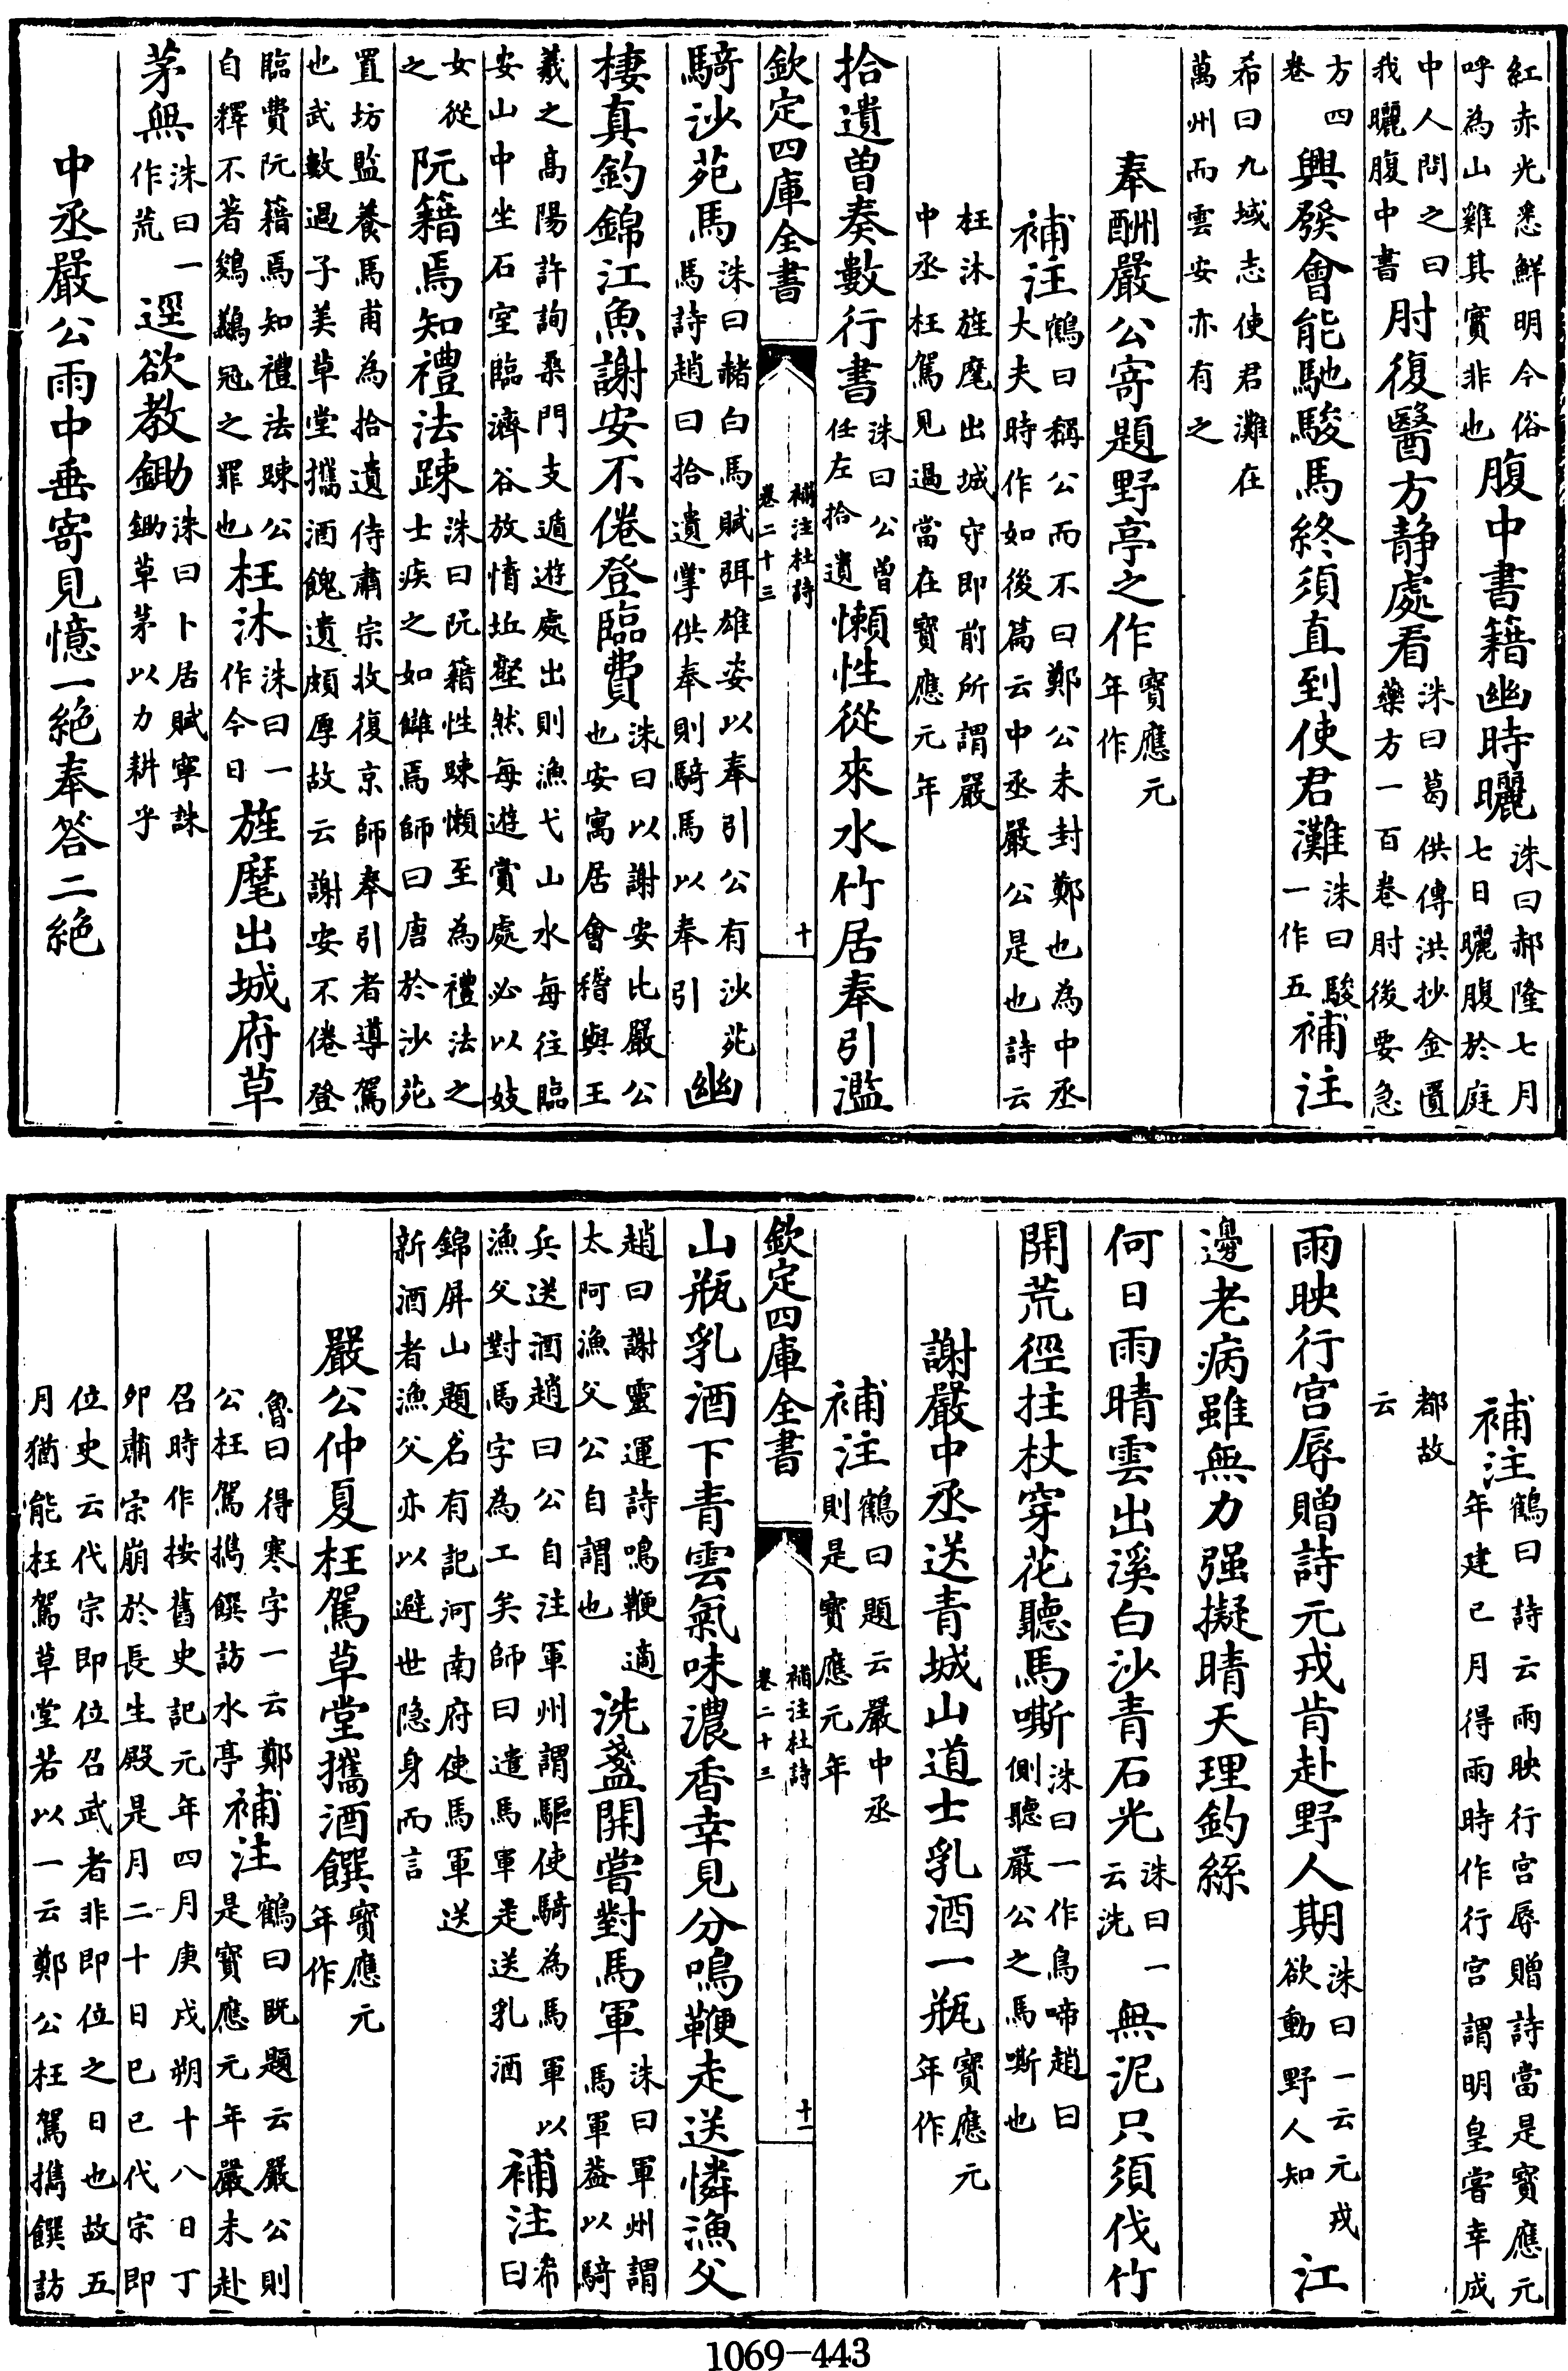 紅赤光悉鮮明今俗呼為山雞其實非也腹中書籍幽時曬洙曰郝隆七月七日曬腹於庭
中人問之曰我曬腹中書肘復醫方静處看洙曰葛供傳洪抄金匱藥方一百卷肘後要急
方四卷興發會能馳駿馬終須直到使君灘洙曰駿一作五補注
希曰九域志使君灘在萬州而雲安亦有之
奉酬嚴公寄題野亭之作寶應元年作
補注鶴曰稱公而不曰鄭公未封鄭也為中丞大夫時作如後篇云中丞嚴公是也詩云
枉沐旌麾出城守即前所謂嚴中丞枉駕見過當在寶應元年
拾遺曽奏數行書洙曰公曽任左拾遺懶性從來水竹居奉引濫
欽定四庫全書
補注杜詩
卷二十三
十
騎沙苑馬洙曰赭白馬賦弭雄姿以奉引公有沙苑馬詩趙曰拾遺掌供奉則騎馬以奉引幽
棲真釣錦江魚謝安不倦登臨費洙曰以謝安比嚴公也安寓居會稽與王
羲之髙陽許詢桑門支遁遊處出則漁弋山水每往臨安山中坐石室臨濬谷放情丘壑然每遊賞處必以妓
女從之阮籍焉知禮法踈洙曰阮籍性踈懶至為禮法之士疾之如讎焉師曰唐於沙苑
置坊監養馬甫為拾遺侍肅宗收復京師奉引者導駕也武數過子美草堂攜酒餽遺頗厚故云謝安不倦登
臨費阮籍焉知禮法踈公自釋不著鵕鸃冠之罪也枉沐洙曰一作今日旌麾出城府草
茅無洙曰一作荒逕欲教鋤洙曰卜居賦寧誅鋤草茅以力耕乎
中丞嚴公雨中垂寄見憶一絶奉答二絶
補注鶴曰詩云雨映行宫辱贈詩當是寶應元年建已月得雨時作行宫謂明皇嘗幸成
都故云
雨映行宫辱贈詩元戎肯赴野人期洙曰一云元戎欲動野人知江
邊老病雖無力强擬晴天理釣絲
何日雨晴雲出溪白沙青石光洙曰一云洗無泥只須伐竹
開荒徑拄杖穿花聽馬嘶洙曰一作鳥啼趙曰側聽嚴公之馬嘶也
謝嚴中丞送青城山道士乳酒一瓶寶應元年作
補注鶴曰題云嚴中丞則是寶應元年
欽定四庫全書
補注杜詩
卷二十三
十一
山瓶乳酒下青雲氣味濃香幸見分鳴鞭走送憐漁父
趙曰謝靈運詩鳴鞭適太阿漁父公自謂也洗盞開嘗對馬軍洙曰軍州謂馬軍葢以騎
兵送酒趙曰公自注軍州謂驅使騎為馬軍以漁父對馬字為工矣師曰遣馬軍走送乳酒補注希曰
錦屏山題名有記河南府使馬軍送新酒者漁父亦以避世隐身而言
嚴公仲夏枉駕草堂攜酒饌寶應元年作
魯曰得寒字一云鄭公枉駕擕饌訪水亭補注鶴曰既題云嚴公則是寶應元年嚴未赴
召時作按舊史記元年四月庚戌朔十八日丁卯肅宗崩於長生殿是月二十日已巳代宗即
位史云代宗即位召武者非即位之日也故五月猶能枉駕草堂若以一云鄭公枉駕擕饌訪
1069-443